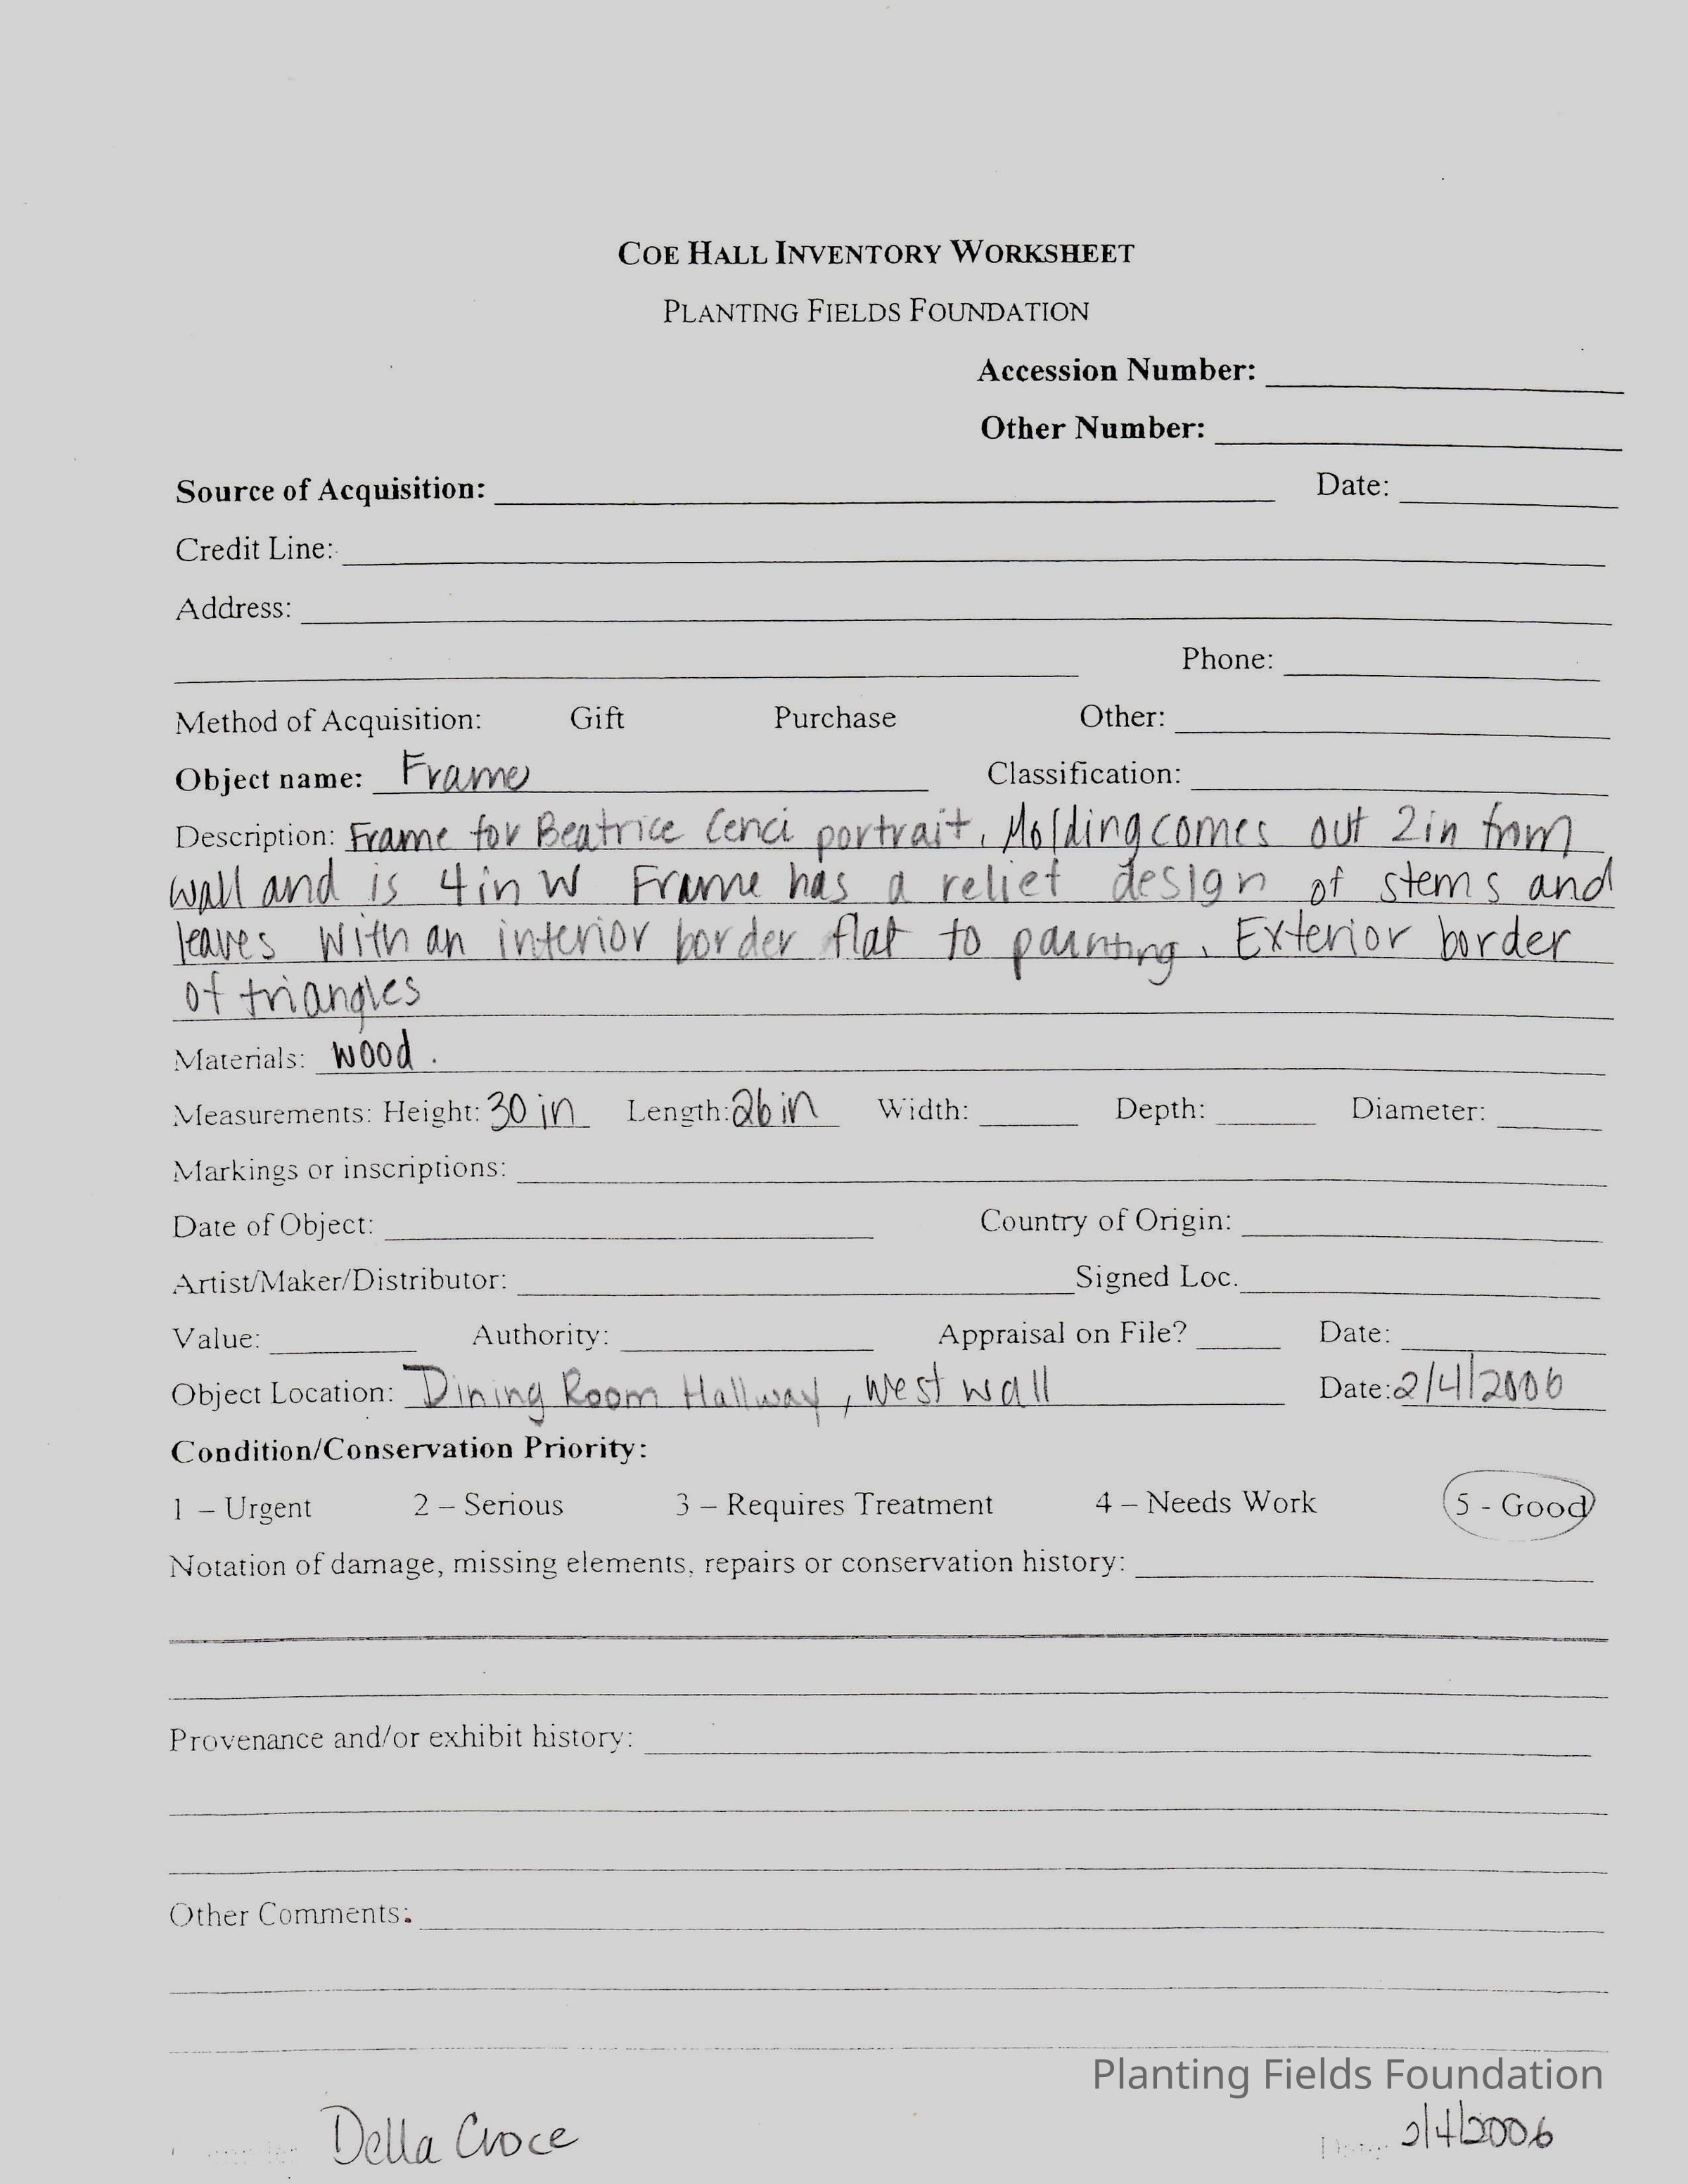 COE HALL INVENTORY WORKSHEET
PLANTING FIELDS FOUNDATION
Accession Number:
Other Number:
Source of Acquisition: Date:
Credit Line:
Address:
Phone:
Method of Acquisition: Gift Purchase Other:
Object name: Frame Classification:
Description: Frame for Beatrice Cenci portrait. Molding comes out 2in from
wall and is 4in W Frame has a relief design of stems and
leaves with an interior border flat to painting. Exterior border
of triangles
Materials: wood.
Measurements: Height: 30 in Length: 26 in Width: Depth: Diameter:
Markings or inscriptions:
Date of Object: Country of Origin:
Artist/Maker/Distributor: Signed Loc.
Value: Authority: Appraisal on File? Date:
Object Location: Dining Room Hallway, West wall Date: 2/4/2006
Condition/Conservation Priority:
1 – Urgent 2 – Serious 3 – Requires Treatment 4 – Needs Work 5 - Good
Notation of damage, missing elements, repairs or conservation history:
Provenance and/or exhibit history:
Other Comments:
Planting Fields Foundation
Della Croce 2/4/2006